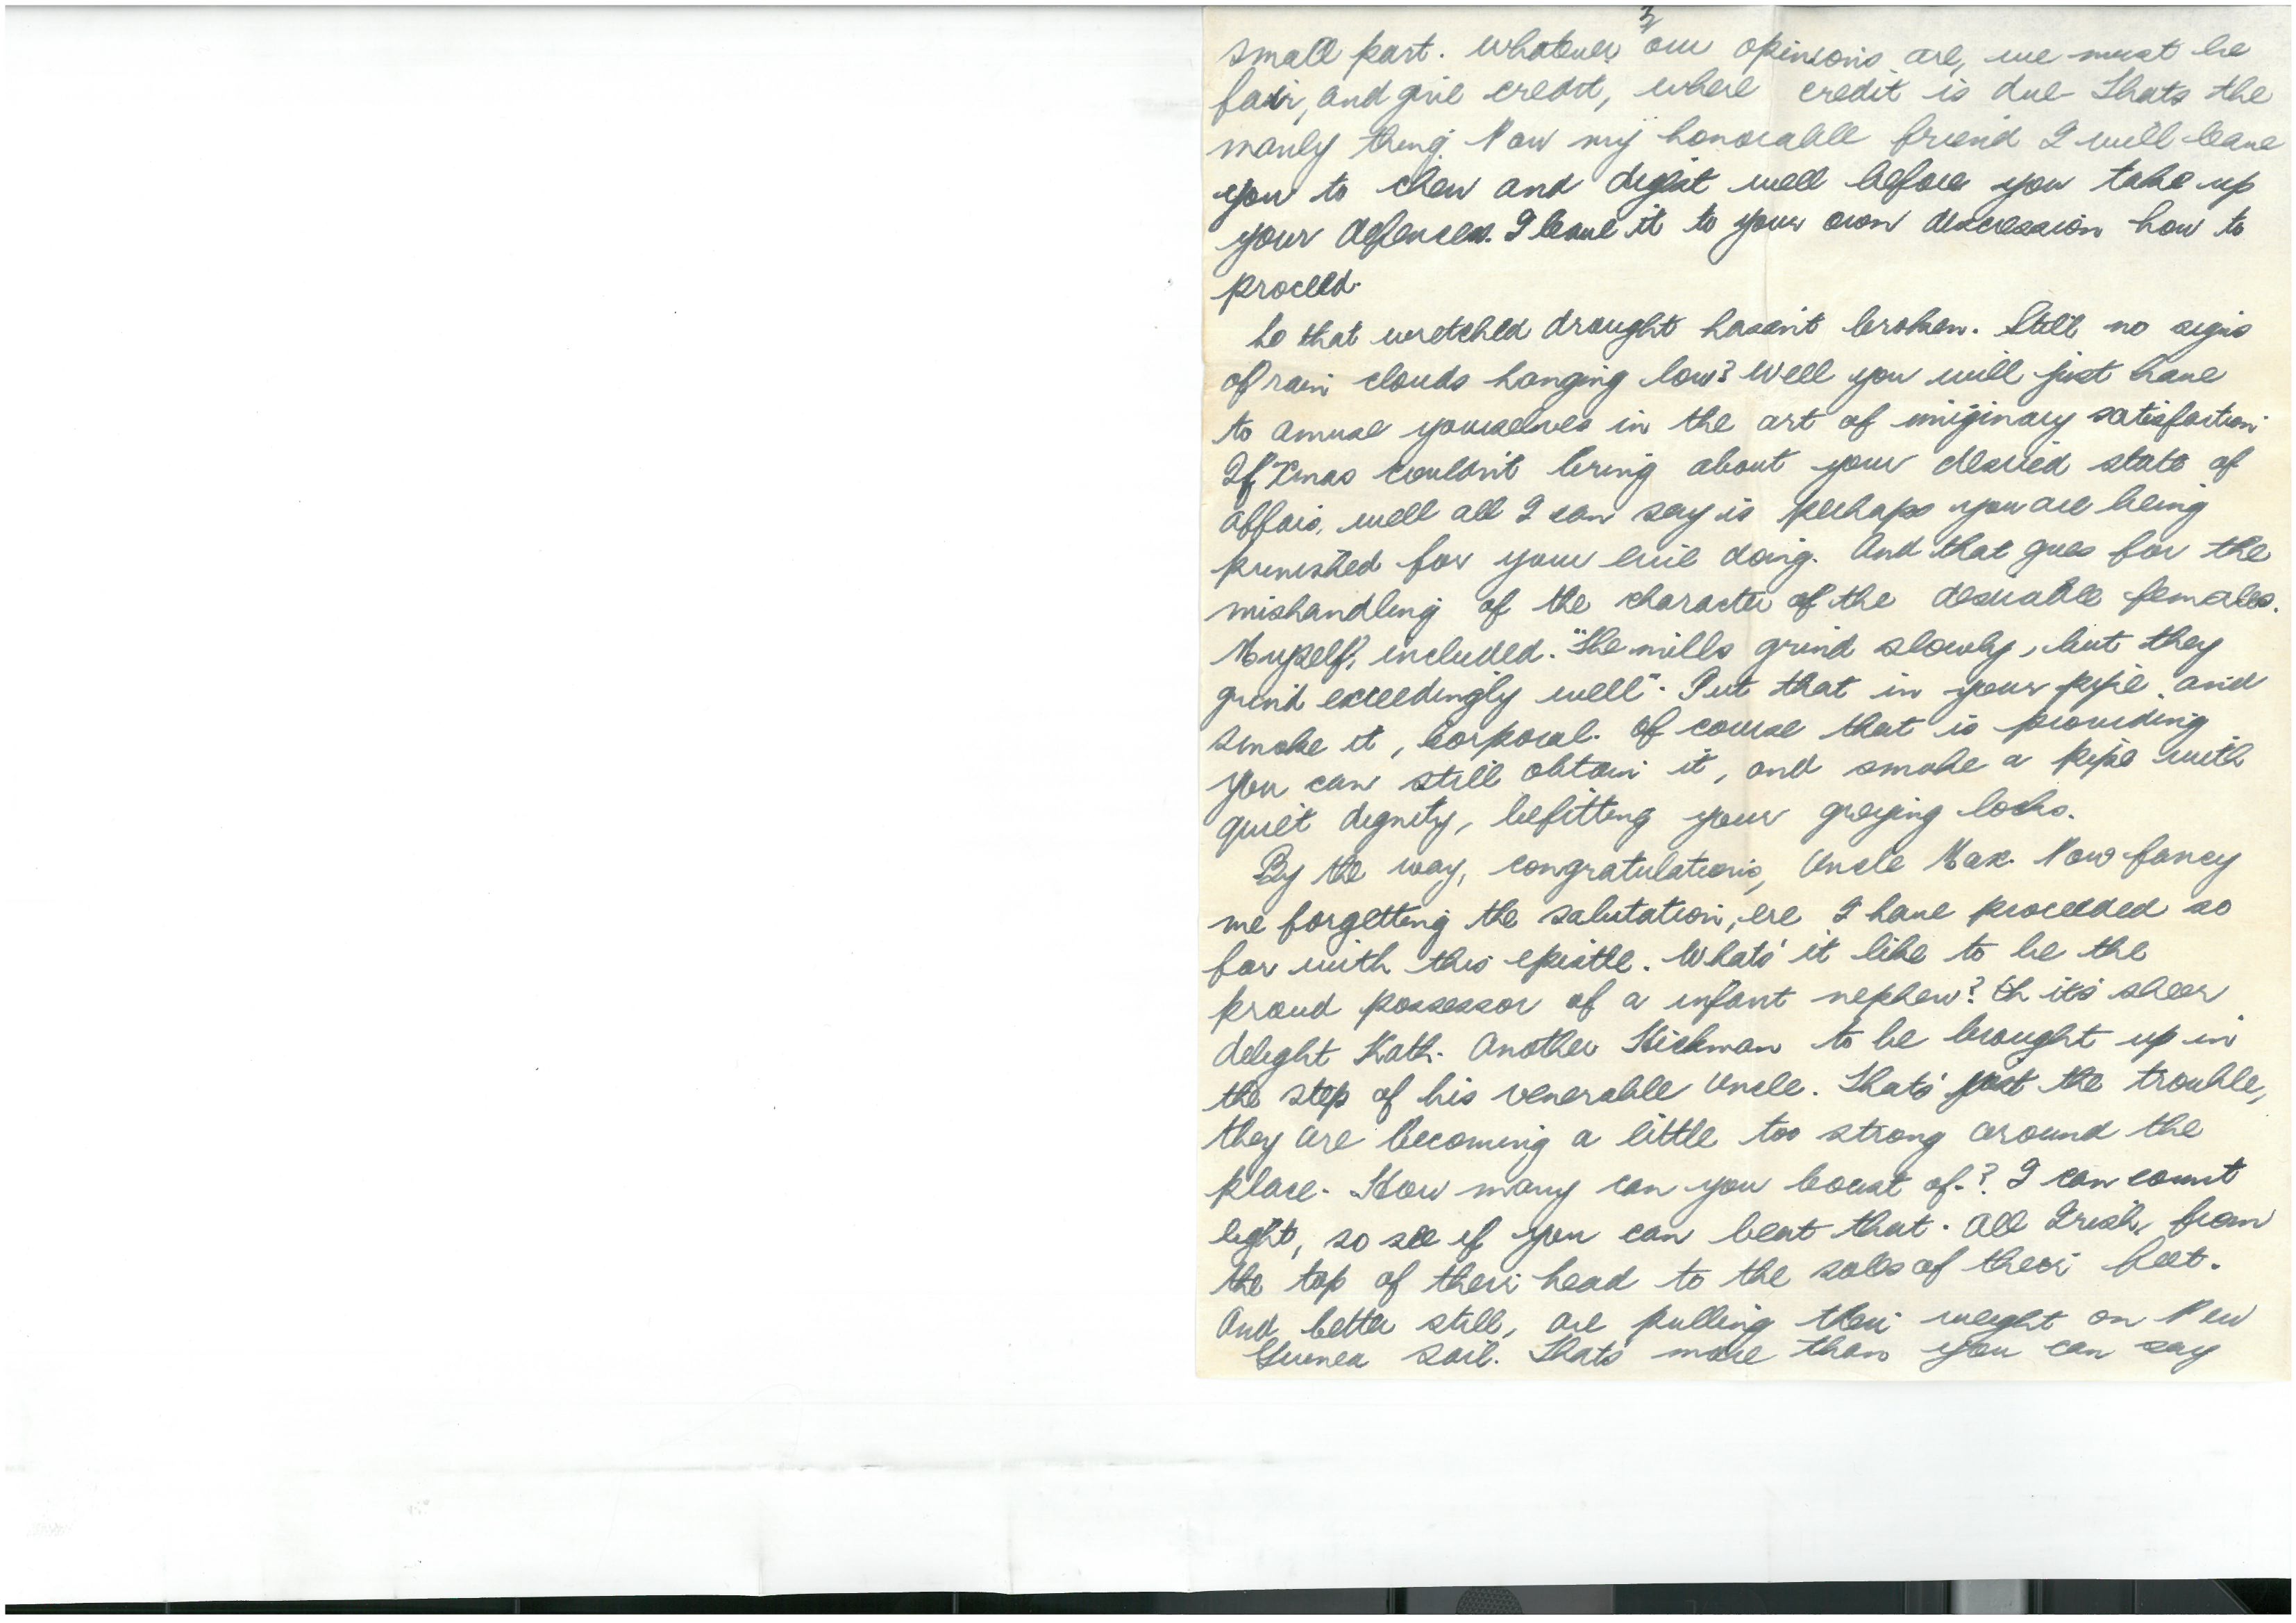 3
small part. Whatever our opinions are, we must be
fair, and give credit, where credit is due. Thats the
manly thing. Now my honorable friend I will leave
you to chew and digest well before you take up
your defences. I leave it to your own descression how to
proceed.
So that wretched drought hasen't broken. Still no signs
of rain clouds hanging low? Well you will just have
to amuse yourselves in the art of imiginary satisfaction.
If Xmas couldn't bring about your desired state of
affairs, well all I can say is perhaps you are being
punished for your evil doing. And that goes for the
mishandling of the character of the desirable females.
Myself, included. "The mills grind slowly, but they
grind exceedingly well". Put that in your pipe, and
smoke it, Corporal. Of course that is providing
you can still obtain it, and smoke a pipe with
quiet dignity, befitting your greying locks.
By the way, congratulations, Uncle Max. Now fancy
me forgetting the salutation, ere I have proceeded so
far with this epistle. Whats' it like to be the
proud possessor of a infant nephew? Oh it's sheer
delight Kath. Another Hickman to be brought up in
the step of his venerable Uncle. Thats' just the trouble,
they are becoming a little too strong around the
place. How many can you boast of.? I can count
eight, so see if you can beat that. All Irish, from
the top of their head to the soles of their feet.
And better still, are pulling their weight on New
Guinea soil. Thats' more than you can say